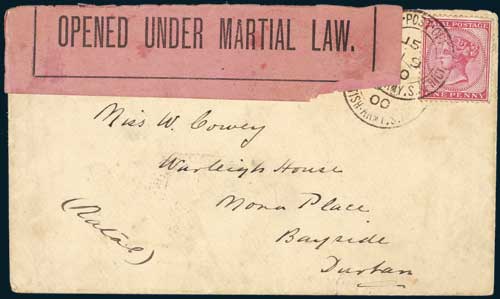 OPENED UNDER MARTIAL LAW.
POSTAGE
ONE PENNY
Miss W. Cowey
Warleigh House
Mona Place
Bayside
Durban
(Natal)